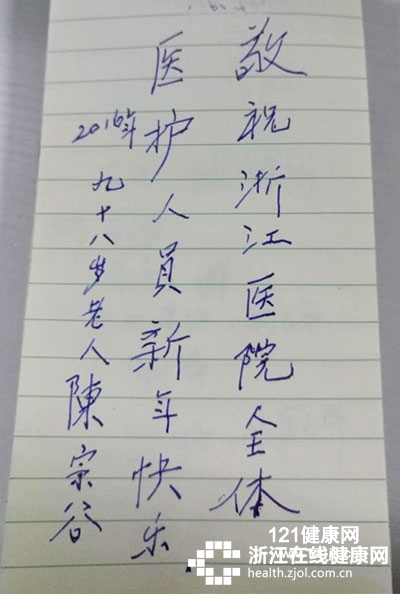 敬祝浙江医院全体
医护人员新年快乐
2016年
九十八岁老人陳宗谷
121健康网
浙江在线健康网
health.zjol.com.cn